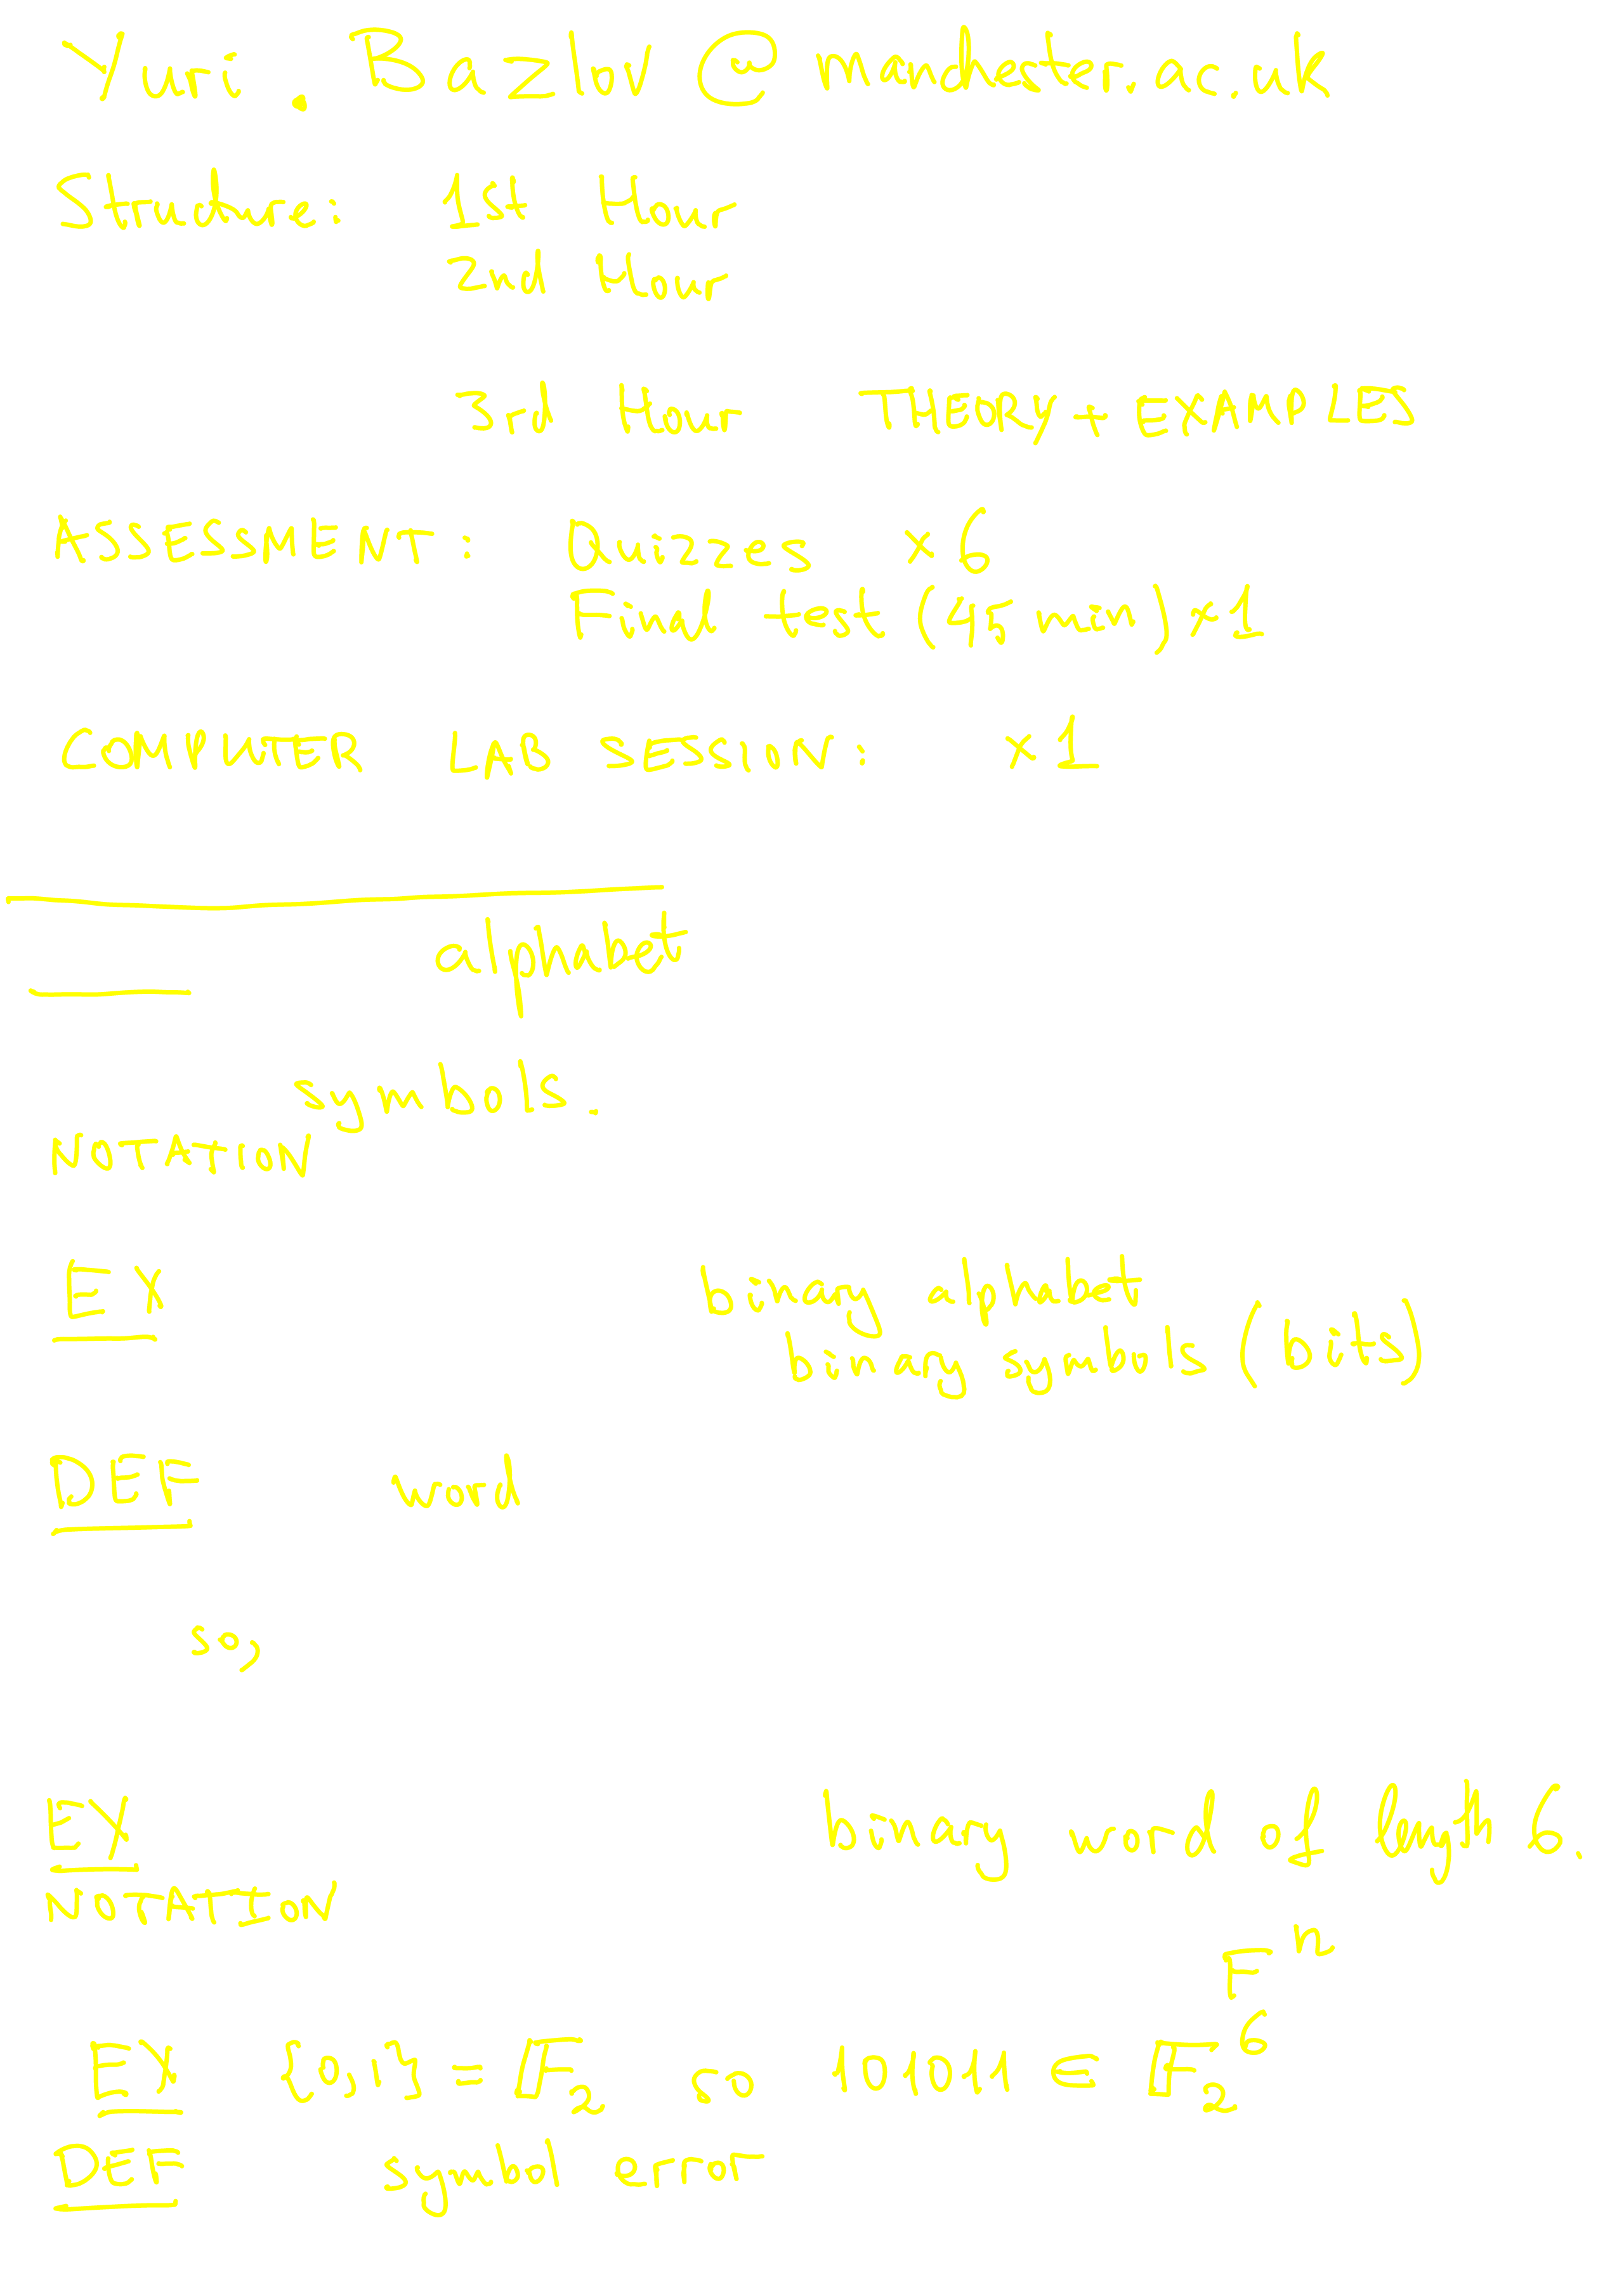 Yuri.Bazlov@manchester.ac.uk
Structure: 1st Hour
2nd Hour
3rd Hour THEORY + EXAMPLES
ASSESSMENT: Quizzes ×6
Final test (45 min) ×1
COMPUTER LAB SESSION: ×1
alphabet
symbols.
NOTATION
EX binary alphabet
binary symbols (bits)
DEF word
so,
EX binary word of length 6.
NOTATION
Fⁿ
EX {0,1} = 𝔽₂ so 101011 ∈ 𝔽₂⁶
DEF symbol error